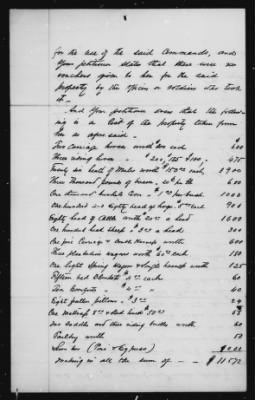 for the use of the said Commands, and
your petitioner states that there were no
vouchers given to her for the said
property by the officers or soldiers who took
it —
And your petitioner avers that the follow-
ing is a list of the property taken from
her as aforesaid —
Two Carriage horses worth each 600
Three riding horses $200, $125 $100. 475
Twenty six head of Mules worth $150 each 3900
Three thousand pounds of bacon, 20¢ per lb 600
One thousand bushels Corn per bushel 1000
One hundred and Eighty head of hogs $5 each 900
Eighty head of Cattle worth 20 a head 1600
One hundred head sheep $3 a head 300
One fine Carriage & double Harness worth 600
Three worth 60 each 180
One light Spring wagon & harness worth 125
Fifteen bed Blankets each
Ten $4 40
Eight feather pillows $3 24
One Mattress and 58
Two saddles and three riding bridles worth 60
Poultry worth 50
Lumber (Pine & Cypress)
Making in all the sum of — — $11572